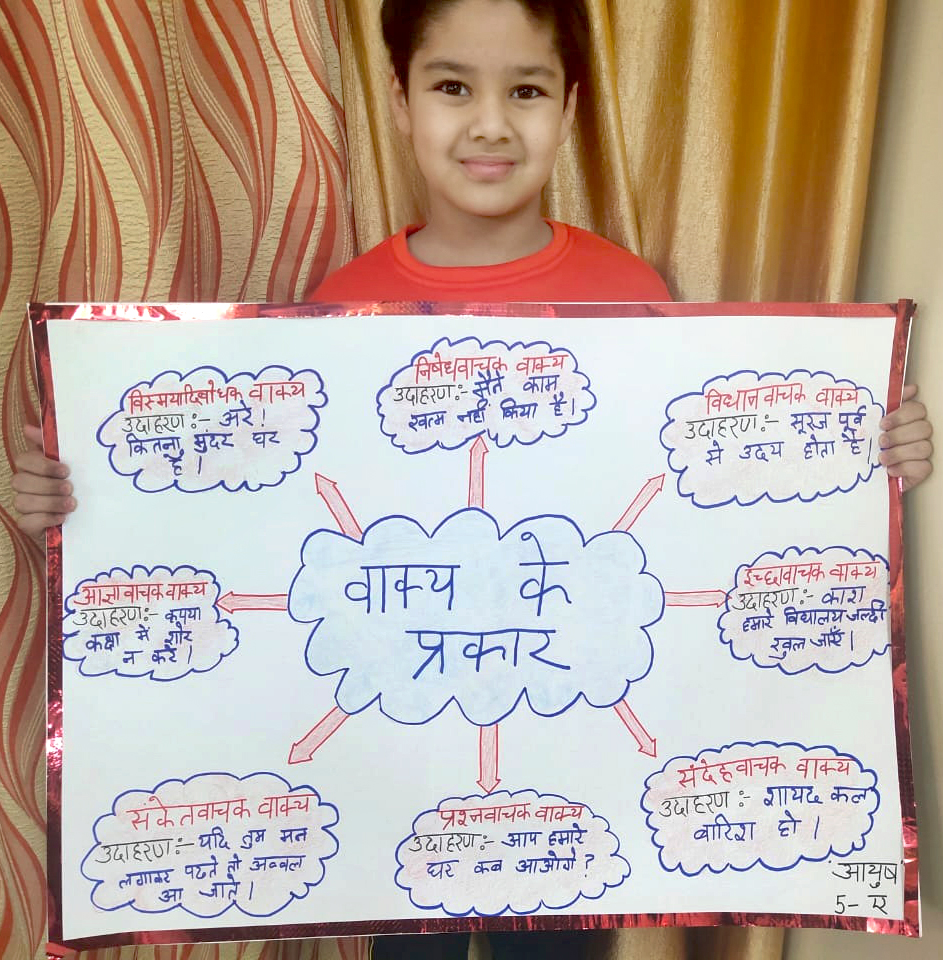 वाक्य के
प्रकार
विस्मयादिबोधक वाक्य
उदाहरण:- अरे!
कितना सुंदर घर
है।
निषेधवाचक वाक्य
उदाहरण:- मैंने काम
खत्म नहीं किया है।
विधानवाचक वाक्य
उदाहरण:- सूरज पूर्व
से उदय होता है।
आज्ञावाचक वाक्य
उदाहरण:- कृपया
कक्षा में शोर
न करें।
इच्छावाचक वाक्य
उदाहरण:- काश
हमारे विद्यालय जल्दी
खुल जाएँ।
संकेतवाचक वाक्य
उदाहरण:- यदि तुम मन
लगाकर पढ़ते तो अव्वल
आ जाते।
प्रश्नवाचक वाक्य
उदाहरण:- आप हमारे
घर कब आओगे?
संदेहवाचक वाक्य
उदाहरण:- शायद कल
बारिश हो।
आयुष
5-ए